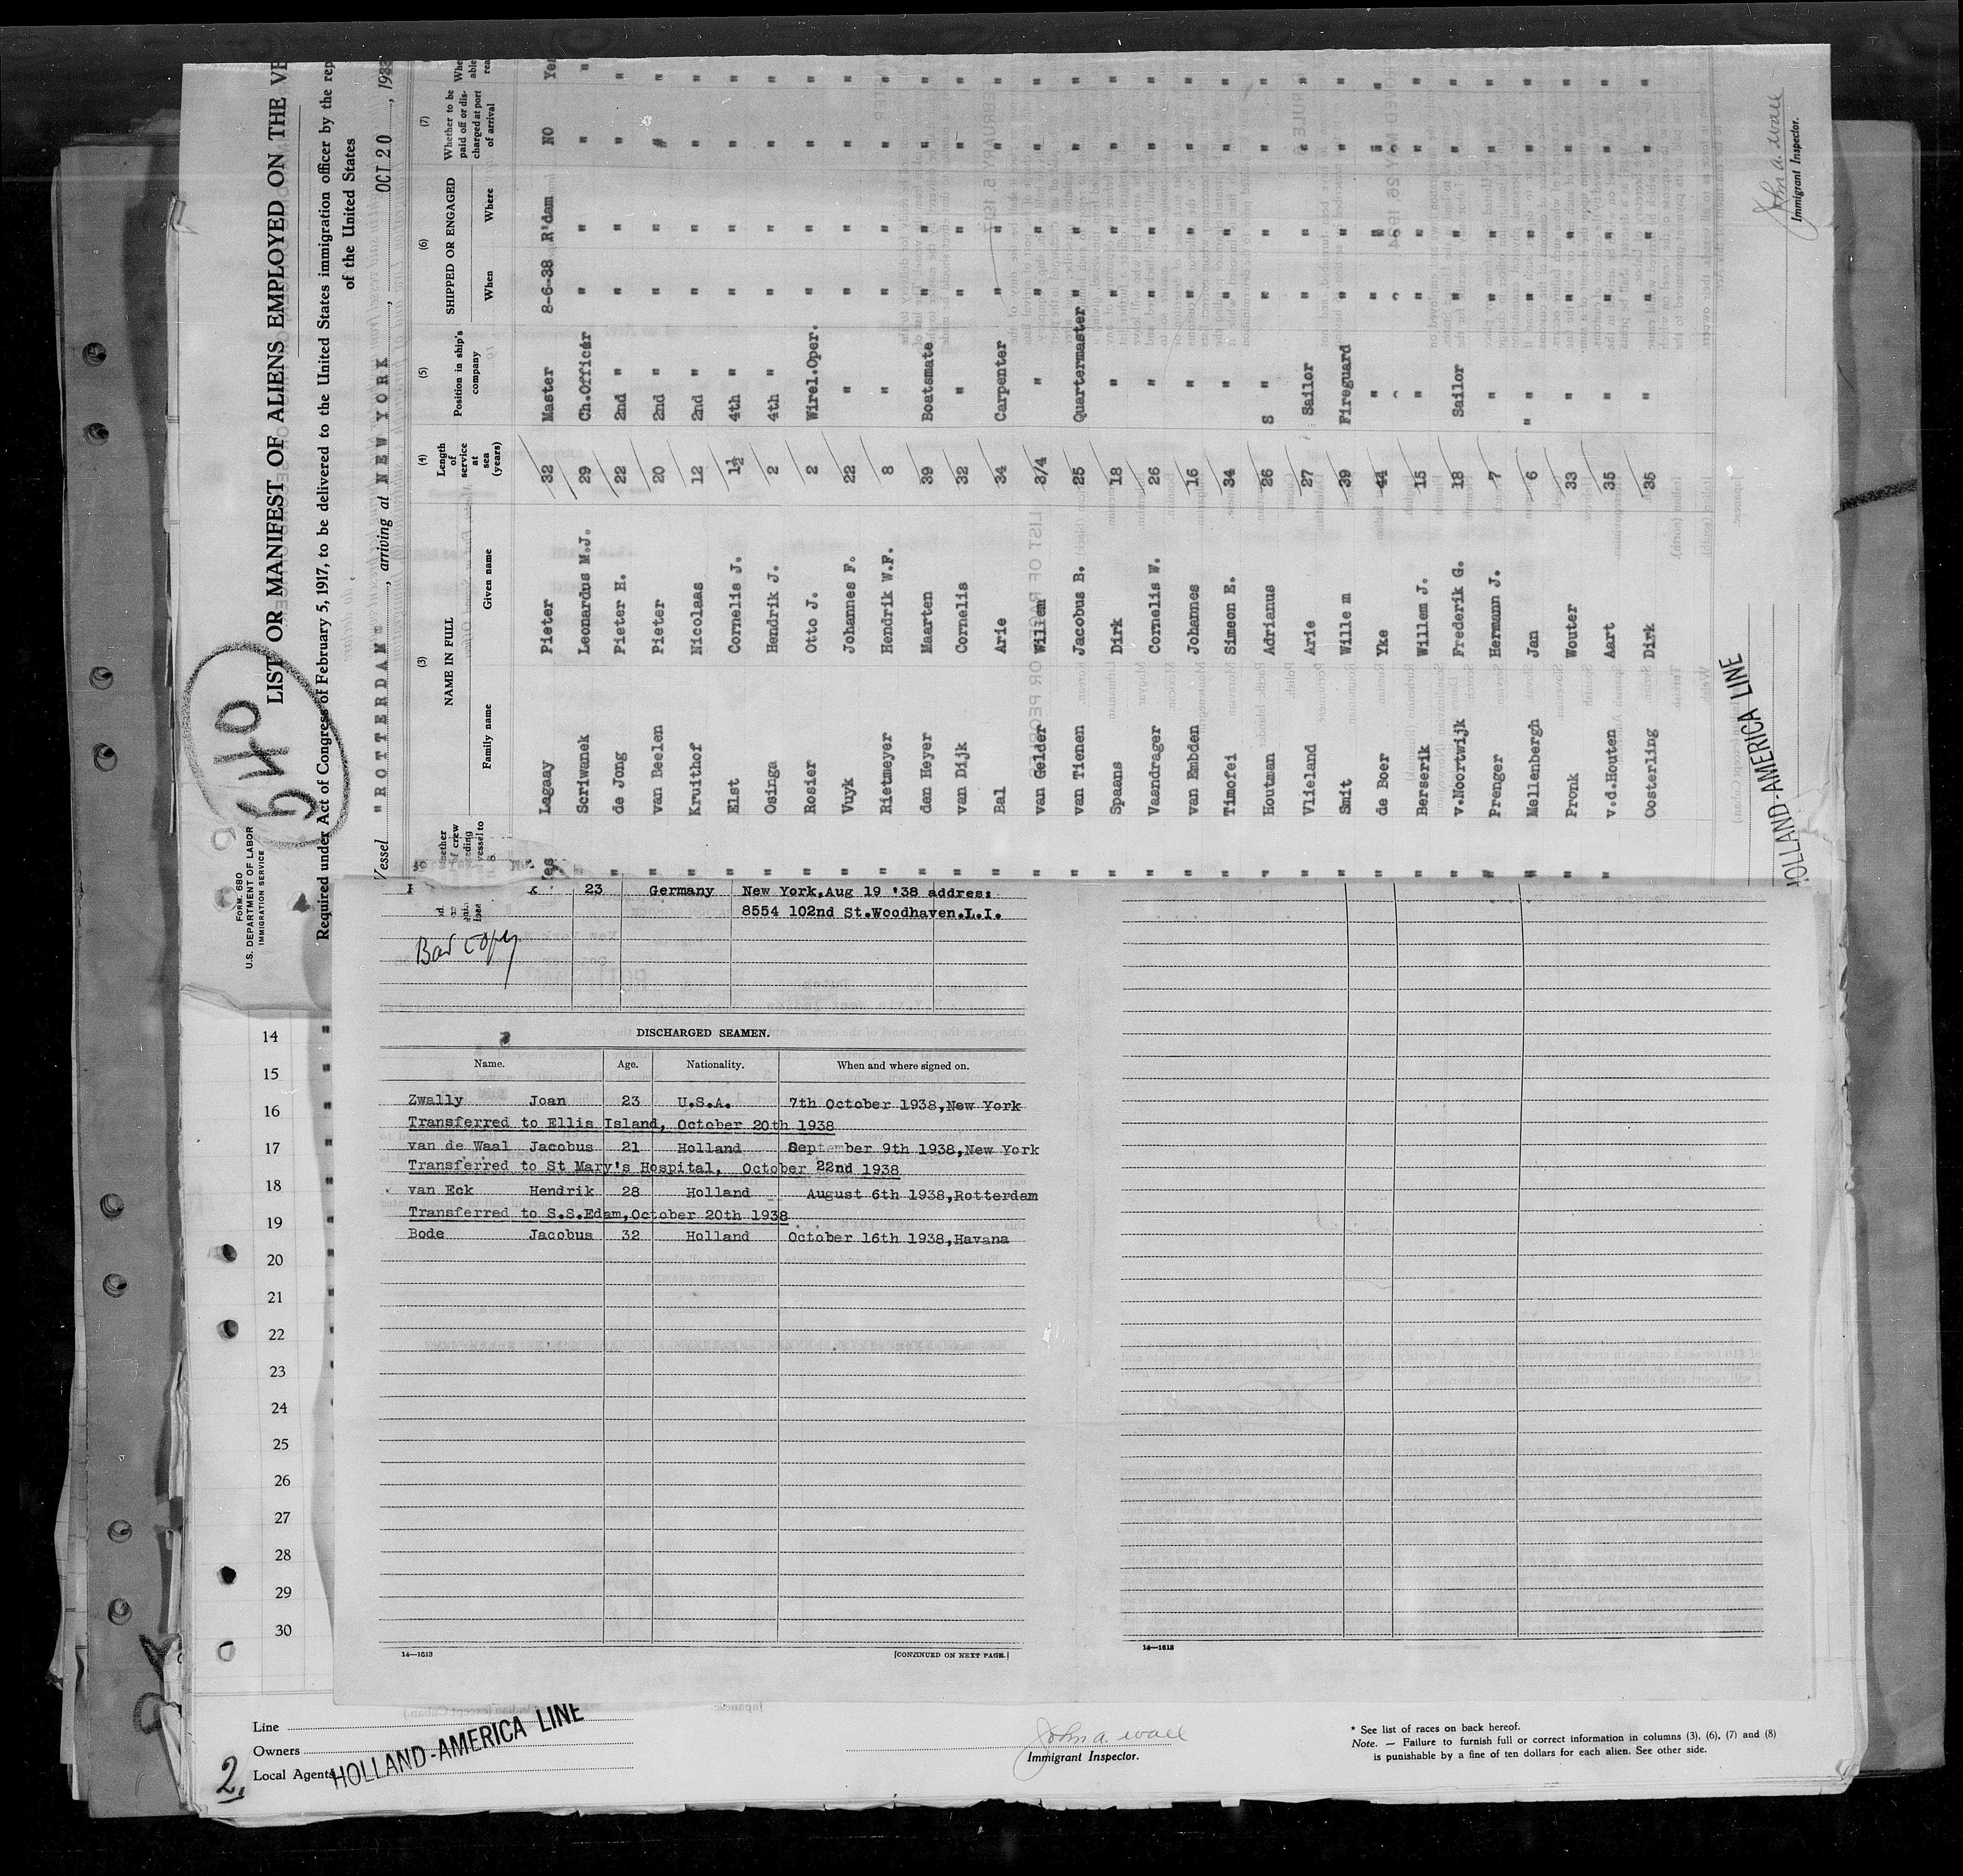 FORM 680
U.S. DEPARTMENT OF LABOR
IMMIGRATION SERVICE
LIST OR MANIFEST OF ALIENS EMPLOYED ON THE
Required under Act of Congress of February 5, 1917, to be delivered to the United States immigration officer by the
of the United States
Vessel "ROTTERDAM", arriving at NEW YORK, OCT 20, 193
(3) (4) (5) (6) (7)
NAME IN FULL Length of service at sea (years) Position in ship's company SHIPPED OR ENGAGED Whether to be paid off or discharged at port of arrival
Family name Given name When Where
Lagaay Pieter 32 Master 8-6-38 R'dam NO Yes
Scriwanek Leonardus M.J. 29 Ch.Officer " " " "
de Jong Pieter H. 22 2nd " " " " "
van Beelen Pieter 20 2nd " " " " "
Kruithof Nicolaas 12 2nd " " " " "
Elst Cornelis J. 1½ 4th " " " " "
Osinga Hendrik J. 2 4th " " " " "
Rosier Otto J. 2 Wirel.Oper. " " " "
Vuyk Johannes F. 22 " " " " "
Rietmeyer Hendrik W.F. 8 " " " " "
den Heyer Maarten 39 Boatsmate " " " "
van Dijk Cornelis 32 " " " " "
Bal Arie 34 Carpenter " " " "
van Gelder Willem 3/4 " " " " "
van Tienen Jacobus B. 25 Quartermaster " " " "
Spaans Dirk 18 " " " " "
Vaandrager Cornelis W. 26 " " " " "
van Embden Johannes 16 " " " " "
Timofei Simeon E. 34 " " " " "
Houtman Adrianus 26 S " " " " "
Vlieland Arie 27 Sailor " " " "
Smit Wille m 39 Fireguard " " " "
de Boer Yke 44 " " " " "
Berserik Willem J. 15 " " " " "
v.Noortwijk Frederik G. 18 Sailor " " " "
Prenger Hermann J. 7 " " " " "
Mellenbergh Jan 6 " " " " "
Pronk Wouter 33 " " " " "
v.d.Houten Aart 35 " " " " "
Oosterling Dirk 35 " " " " "
HOLLAND-AMERICA LINE
John A. Wall
Immigrant Inspector.
23 Germany New York,Aug 19 '38 addres:
8554 102nd St.Woodhaven.L.I.
Bad copy
DISCHARGED SEAMEN.
Name. Age. Nationality. When and where signed on.
Zwally Joan 23 U.S.A. 7th October 1938,New York
Transferred to Ellis Island, October 20th 1938
van de Waal Jacobus 21 Holland September 9th 1938,New York
Transferred to St Mary's Hospital, October 22nd 1938
van Eck Hendrik 28 Holland August 6th 1938,Rotterdam
Transferred to S.S.Edam,October 20th 1938
Bode Jacobus 32 Holland October 16th 1938,Havana
14—1613 [CONTINUED ON NEXT PAGE.]
14—1613
14
15
16
17
18
19
20
21
22
23
24
25
26
27
28
29
30
Line
Owners
Local Agents
HOLLAND-AMERICA LINE
2.
John A. Wall
Immigrant Inspector.
* See list of races on back hereof.
Note. — Failure to furnish full or correct information in columns (3), (6), (7) and (8)
is punishable by a fine of ten dollars for each alien. See other side.